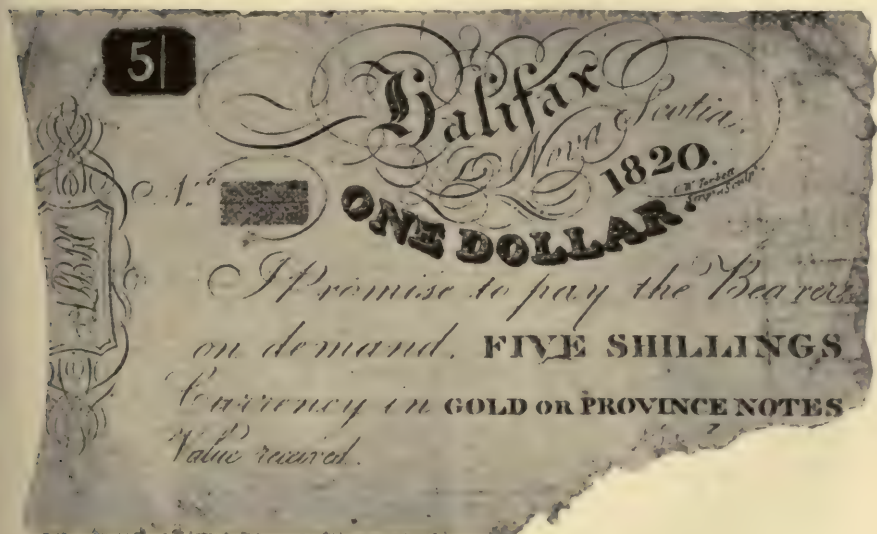 5|
Halifax
Nova Scotia.
1820.
N.º
ONE DOLLAR.
I Promise to pay the Bearer
on demand. FIVE SHILLINGS
Currency in GOLD OR PROVINCE NOTES
Value received.